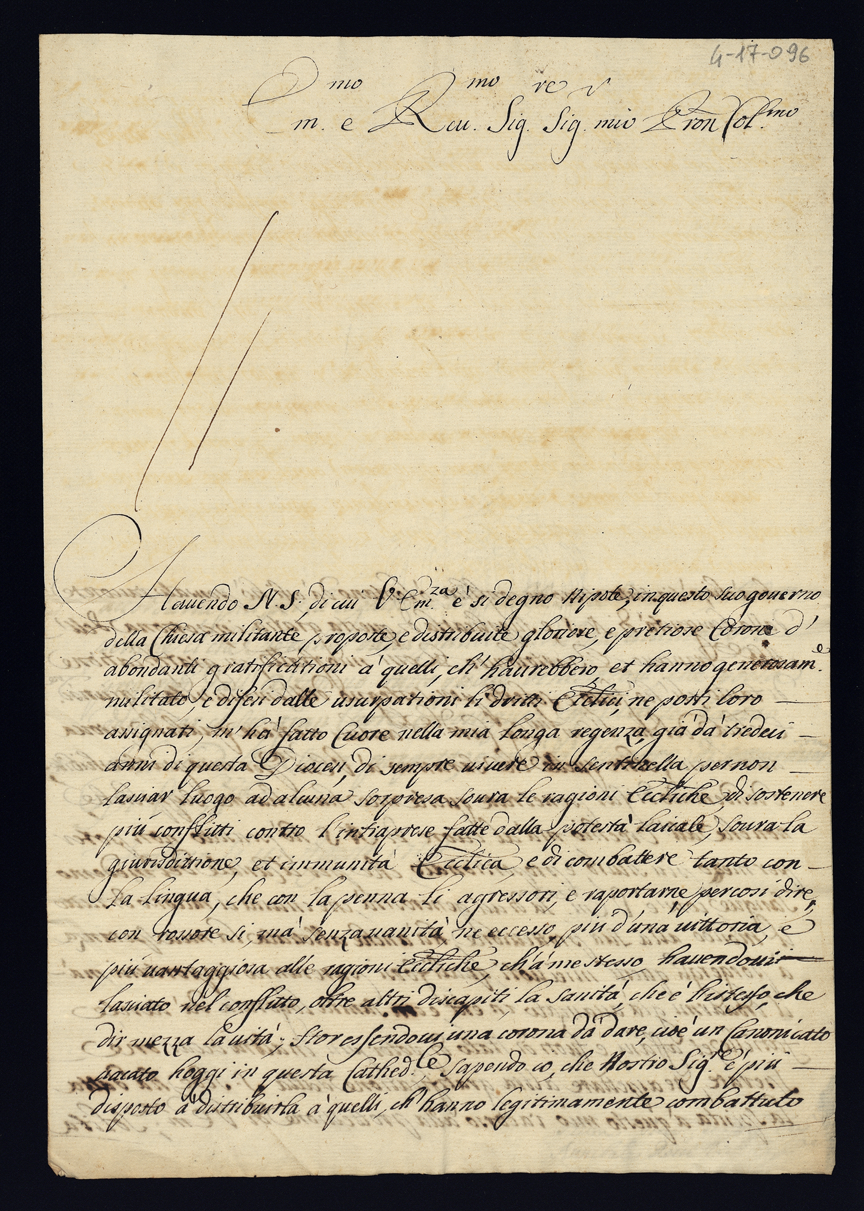 4-17-096
Em.mo e Reu.mo Sig.re Sig.r mio Pron Col.mo
Hauendo N. S. di cui V. Em.za è sì degno Nipote, in questo suo gouerno
della Chiesa militante proposte, e distribuite gloriose, e pretiose Corone d'
abondanti gratificationi à quelli, ch' haurebbero, et hanno generosam.e
militato, e difesi dalle usurpationi li dritti Eccl'ici, ne posti loro
assignati, m' hà fatto Cuore nella mia longa regenza, già dà tredeci
anni di questa Diocesi, di sempre uiuere in sentinella per non
lasciar luogo ad alcuna sorpresa soura le ragioni Eccl'iche, di sostenere
più conflitti contro l'intraprese fatte dalla potestà laicale, soura la
giurisdittione, et immunità Eccl'ica, e di combattere tanto con
la lingua, che con la penna li agressori, e raportarne, per così dire,
con rossore sì, mà senza uanità ne eccesso, più d'una uittoria, e
più uantaggiosa alle ragioni Eccl'iche, ch' à me stesso, hauendoui
lasciato nel conflitto, oltre altri discapiti, la sanità, che è l'istesso, che
dir mezza la uità; Hor essendoui una corona dà dare, cioè un Canonicato
uacato hoggi in questa Cathed.le e sapendo io, che Nostro Sig.re è più
disposto à distribuirla à quelli, ch' hanno legitimamente combattuto